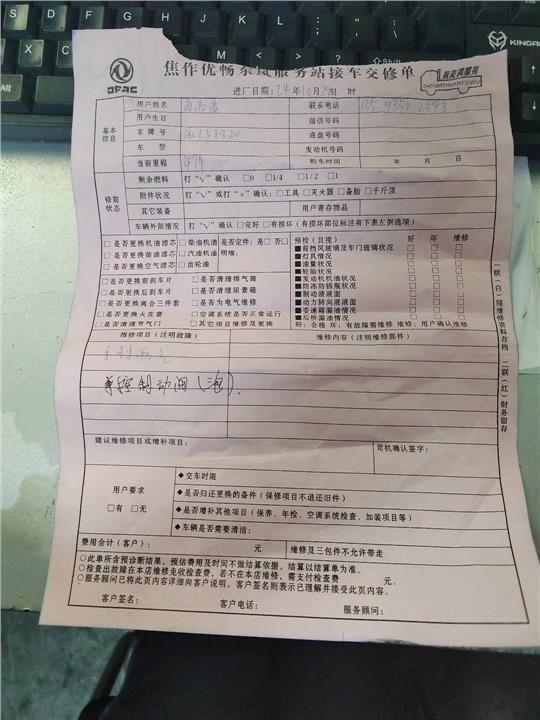 焦作优畅东风服务站接车交修单
DFAC
真美满服务
ZHENMEIMANFUWU
进厂日期：24年10月29日 时
基本信息
用户姓名
联系电话
用户生日
微信号码
车牌号
底盘号码
车 型
发动机号码
当前里程
购车时间 年 月 日
修前状态
剩余燃料 打“√”确认 □0 □1/4 □1/2 □1
附件状况 打“√”或打“×”确认：□工具 □灭火器 □备胎 □千斤顶
其它装备 用户寄存物品
车辆外部情况 打“√”确认 □完好 □有损坏（有损坏部位标注有下表左侧选项）
□是否更换机油滤芯 □柴油机油 是否定件：是□否□
□是否更换柴油滤芯 □汽油机油 明细：
□是否更换空气滤芯 □齿轮油
□是否更换前刹车片 □是否清理排气筒
□是否更换后刹车片 □是否清理尿素箱
□是否更换离合三件套 □是否为电气维修
□是否更换火花塞 □空调系统是否正常运行
□是否清理节气门 □其它项目维修及更换
预检（目视） 好 坏 维修
■前挡风玻璃及车门玻璃状况 □ □ □
■灯具情况 □ □ □
■油量状况 □ □ □
■轮胎状况 □ □ □
■发动机机油状况 □ □ □
■防冻防锈瓶状况 □ □ □
■制动液液面 □ □ □
■动力转向液液面 □ □ □
■变速箱漏油情况 □ □ □
■后桥漏油情况 □ □ □
好：合格 坏：有故障需维修 维修：用户确认维修
报修项目（注明故障） 维修内容（注明维修部件）
手刹漏气
手控制动阀（泡）.
建议维修项目或增补项目：
司机确认签字：
用户要求
□有 □无
◆交车时限
◆是否归还更换的备件（保修项目不退还旧件）
◆是否增补其他项目（保养、年检、空调系统检查、加装项目等）
◆车辆是否需要清洁：
费用合计（客户）： 元 维修及三包件不允许带走
○此单所含预诊断结果，预估费用及时间不做结算依据，结算以结算单为准。
○检查出故障在本店维修免收检查费，若不在本店维修，需支付检查费 元。
○服务顾问已将此页内容详细向客户说明，客户签名则表示已理解并接受此页内容。
客户签名： 客户电话： 服务顾问：
一联（白）随维修资料存档 二联（红）财务留存
Shift